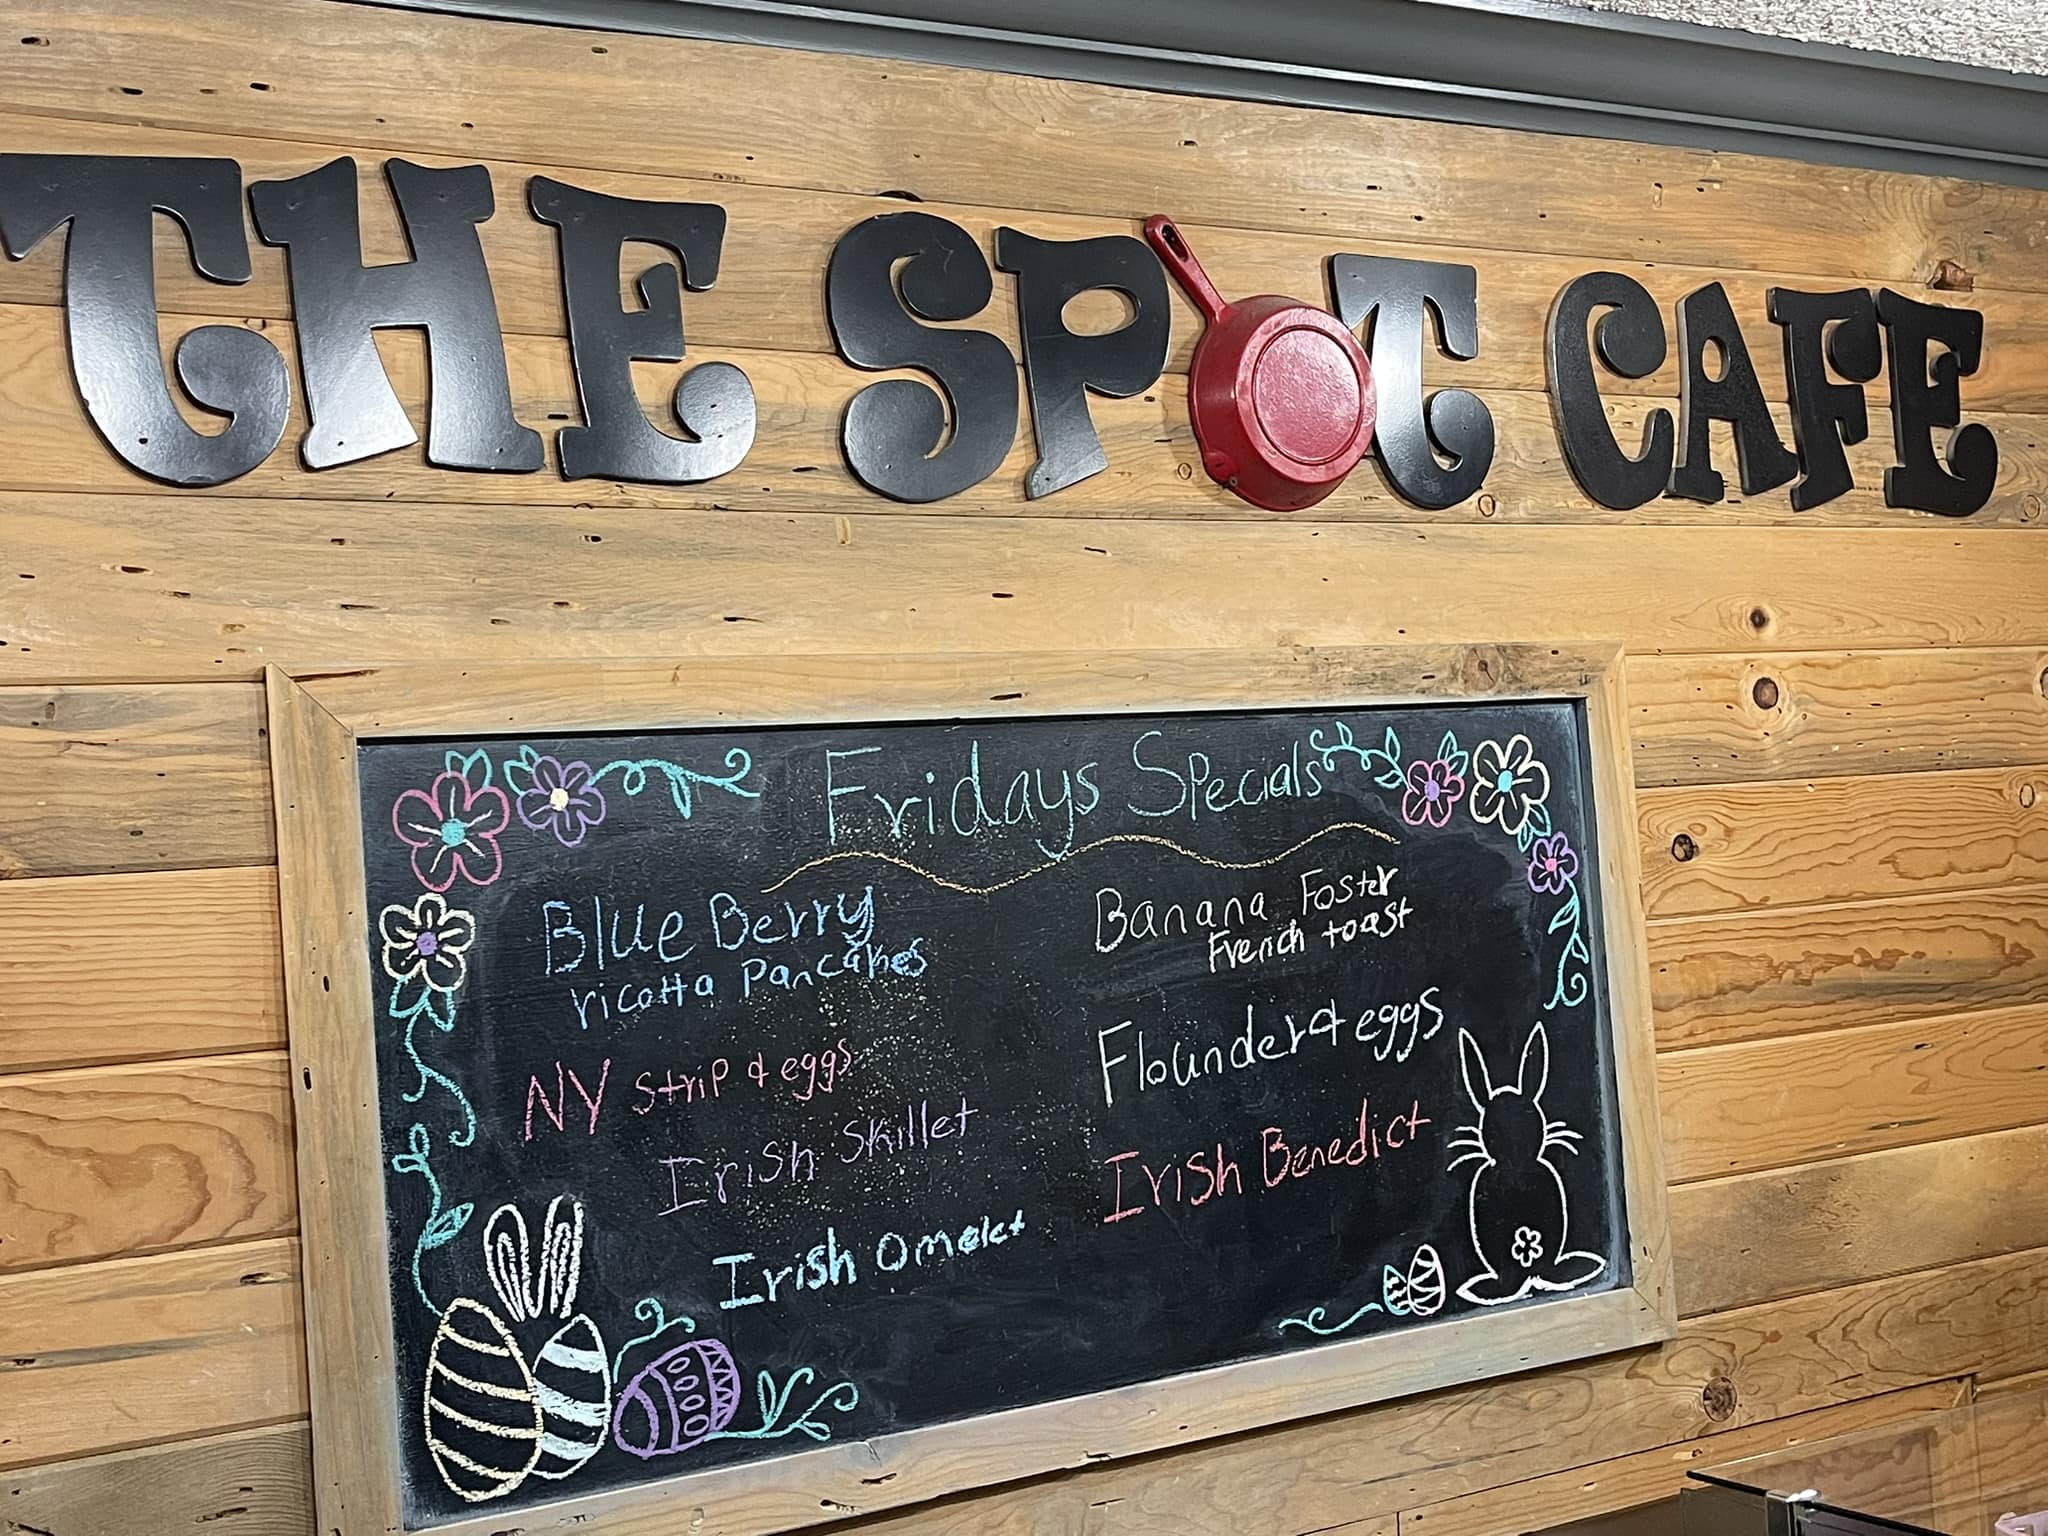 THE SPOT CAFE
Fridays Specials
Blue Berry
ricotta Pancakes
NY Strip & eggs
Irish Skillet
Irish omelet
Banana Foster
French toast
Flounder & eggs
Irish Benedict